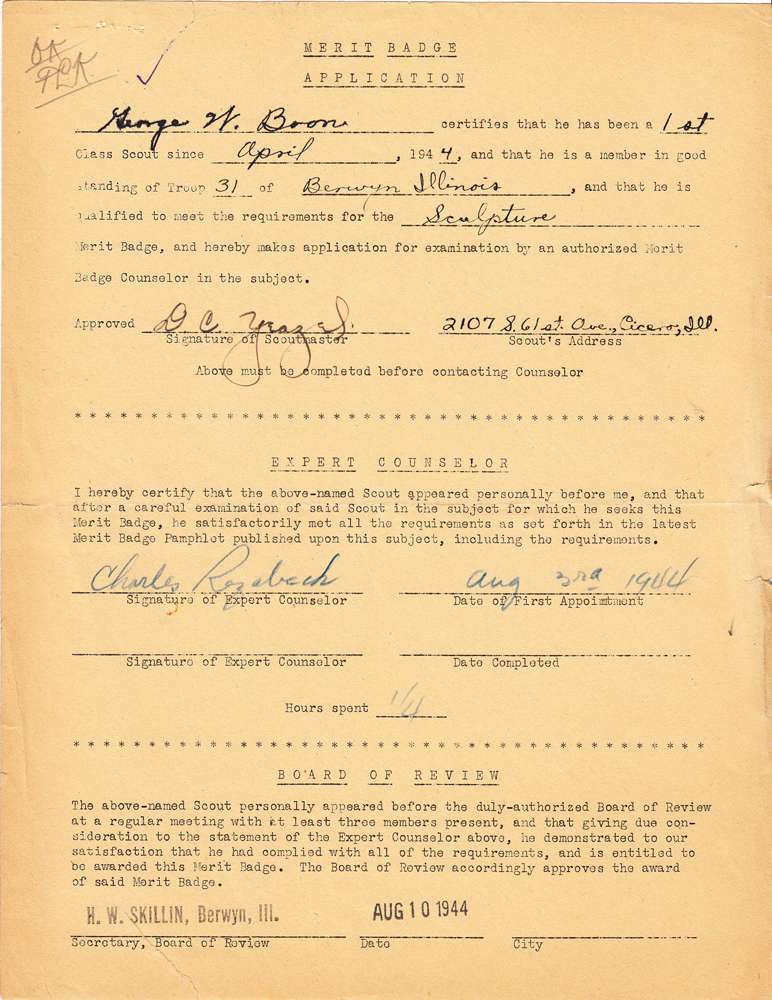 OK
MERIT BADGE
APPLICATION
George W. Boone certifies that he has been a 1st
Class Scout since April, 1944, and that he is a member in good
standing of Troop 31 of Berwyn Illinois, and that he is
qualified to meet the requirements for the Sculpture
Merit Badge, and hereby makes application for examination by an authorized Merit
Badge Counselor in the subject.
Approved D. C. 2107 S. 61st. Ave., Cicero, Ill.
Signature of Scoutmaster Scout's Address
Above must be completed before contacting Counselor
* * * * * * * * * * * * * * * * * * * * * * * * * * * * * * * * * * * * * * * * *
EXPERT COUNSELOR
I hereby certify that the above-named Scout appeared personally before me, and that
after a careful examination of said Scout in the subject for which he seeks this
Merit Badge, he satisfactorily met all the requirements as set forth in the latest
Merit Badge Pamphlet published upon this subject, including the requirements.
Charles Aug 3rd 1944
Signature of Expert Counselor Date of First Appointment
Signature of Expert Counselor Date Completed
Hours spent 1/4
* * * * * * * * * * * * * * * * * * * * * * * * * * * * * * * * * * * * * * * * *
BOARD OF REVIEW
The above-named Scout personally appeared before the duly-authorized Board of Review
at a regular meeting with at least three members present, and that giving due con-
sideration to the statement of the Expert Counselor above, he demonstrated to our
satisfaction that he had complied with all of the requirements, and is entitled to
be awarded this Merit Badge. The Board of Review accordingly approves the award
of said Merit Badge.
H. W. SKILLIN, Berwyn, Ill. AUG 10 1944
Secretary, Board of Review Date City